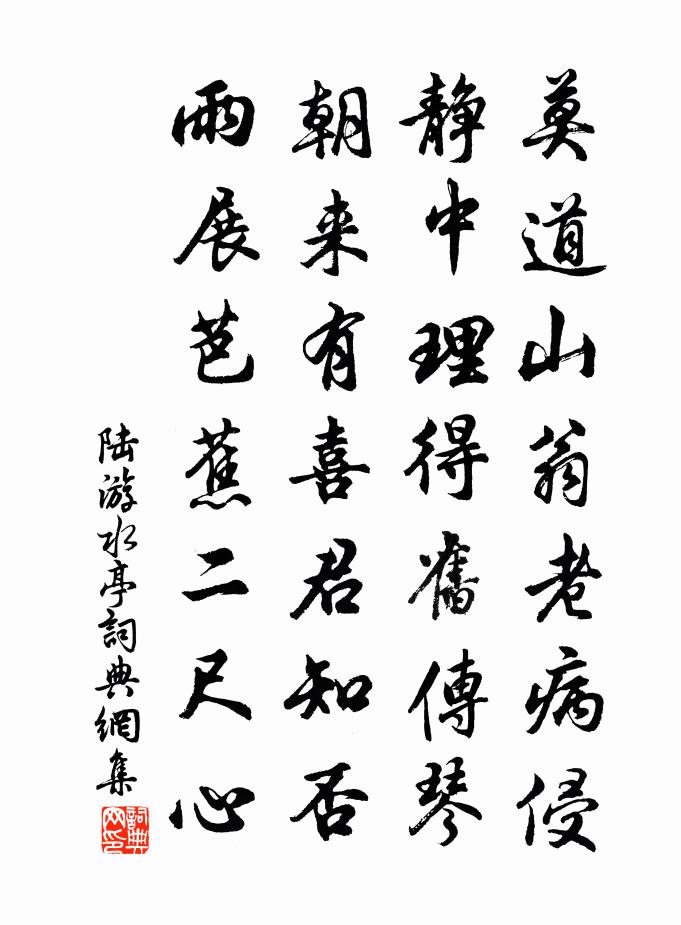 莫道山翁老病侵
静中理得舊傳琴
朝来有喜君知否
雨展芭蕉二尺心
陆游水亭詞典網集
詞典
网印